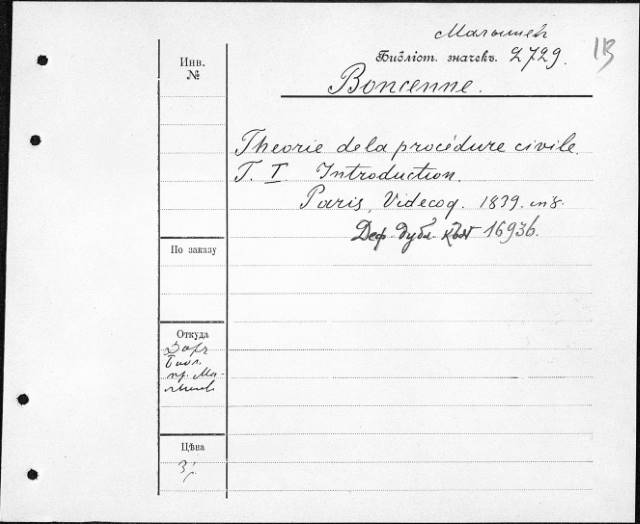 Малышев
Библіот. значекъ. 2729.
1В
Инв.
№
Boncenne.
Theorie de la procédure civile.
T. I. Introduction.
Paris, Videcoq. 1839. in 8.
Деф. дубл. къ № 16936.
По заказу
Откуда
Библ.
пр. Ма-
лышева
Цѣна
3/